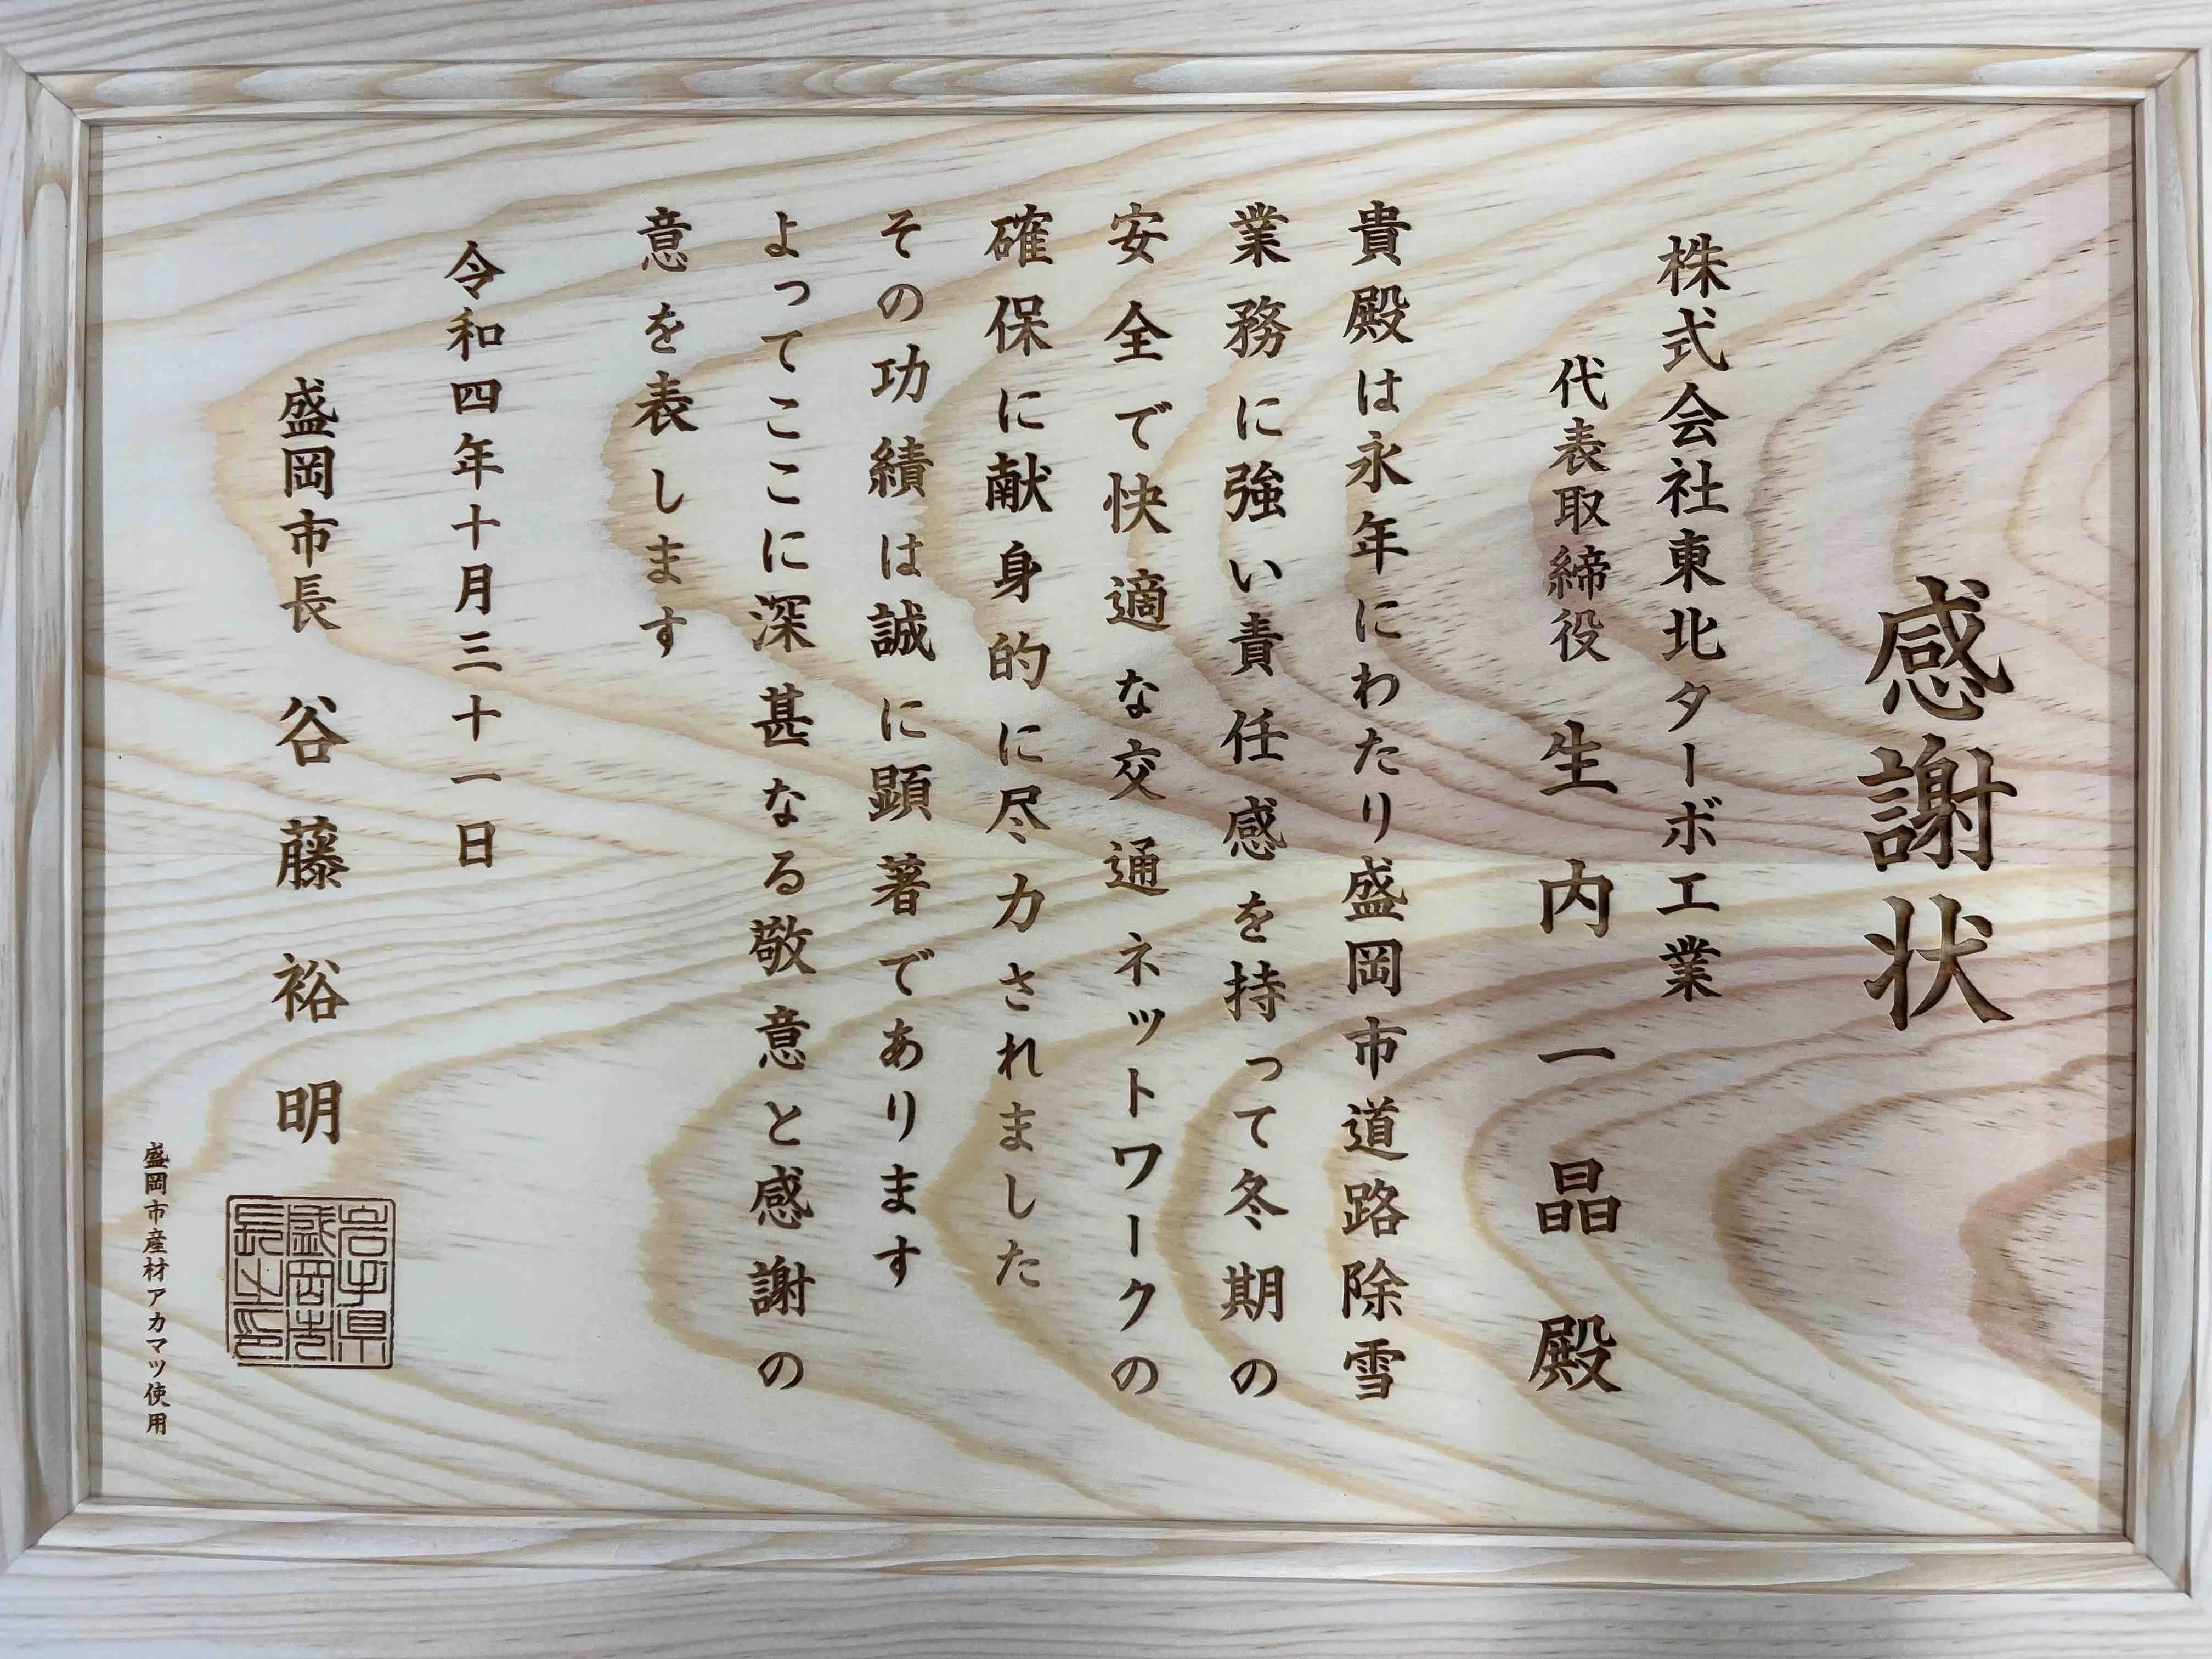 感謝状
株式会社東北ターボ工業
代表取締役 生内一晶殿
貴殿は永年にわたり盛岡市道路除雪
業務に強い責任感を持って冬期の
安全で快適な交通ネットワークの
確保に献身的に尽力されました
その功績は誠に顕著であります
よってここに深甚なる敬意と感謝の
意を表します
令和四年十月三十一日
盛岡市長 谷藤裕明
岩手県
盛岡市
長之印
盛岡市産材アカマツ使用